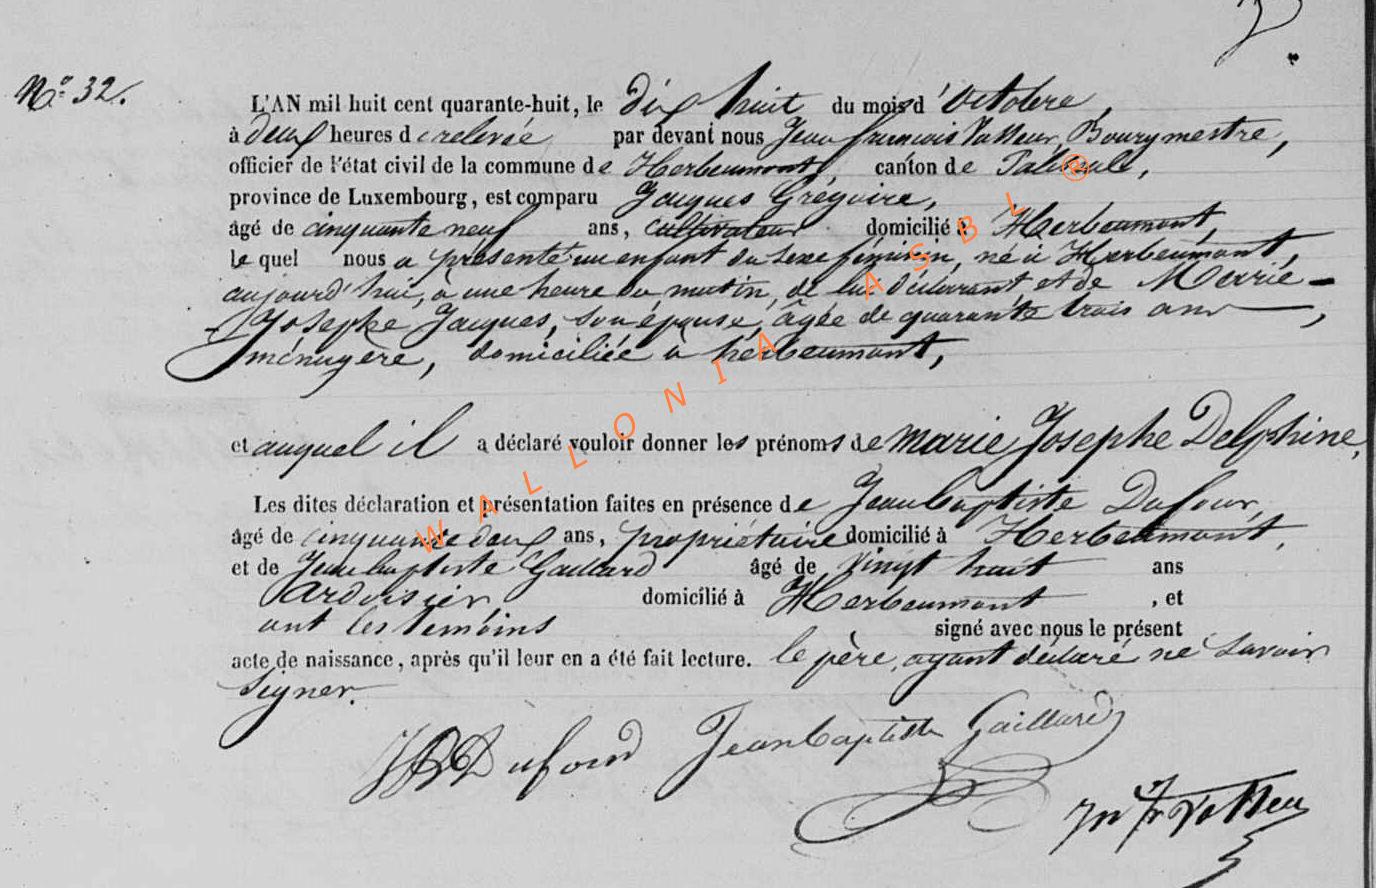 N.º 32.
L'AN mil huit cent quarante-huit, le dix huit du mois d'Octobre,
à deux heures de relevée par devant nous Jean francois Vasseur, Bourgmestre,
officier de l'état civil de la commune de Herbeumont, canton de Paliseule,
province de Luxembourg, est comparu Jacques Grégoire,
âgé de cinquante neuf ans, cultivateur domicilié à Herbeumont,
le quel nous a présenté un enfant du sexe féminin, né à Herbeumont,
aujourd'hui, à une heure du matin, de lui déclarant et de Marie-
Josephe Jacques, son épouse, âgée de quarante trois ans,
ménagère, domiciliée à herbeumont,
et auquel il a déclaré vouloir donner les prénoms de marie Josephe Delphine,
Les dites déclaration et présentation faites en présence de Jean baptiste Dufour,
âgé de cinquante deux ans, propriétaire domicilié à Herbeumont,
et de Jean baptiste Gaillard âgé de vingt huit ans
Ardoisier domicilié à Herbeumont, et
ont les témoins signé avec nous le présent
acte de naissance, après qu'il leur en a été fait lecture. le père, ayant déclaré ne savoir
signer.
JB Dufour Jean baptiste Gaillard
WALLONIA ASBL ®